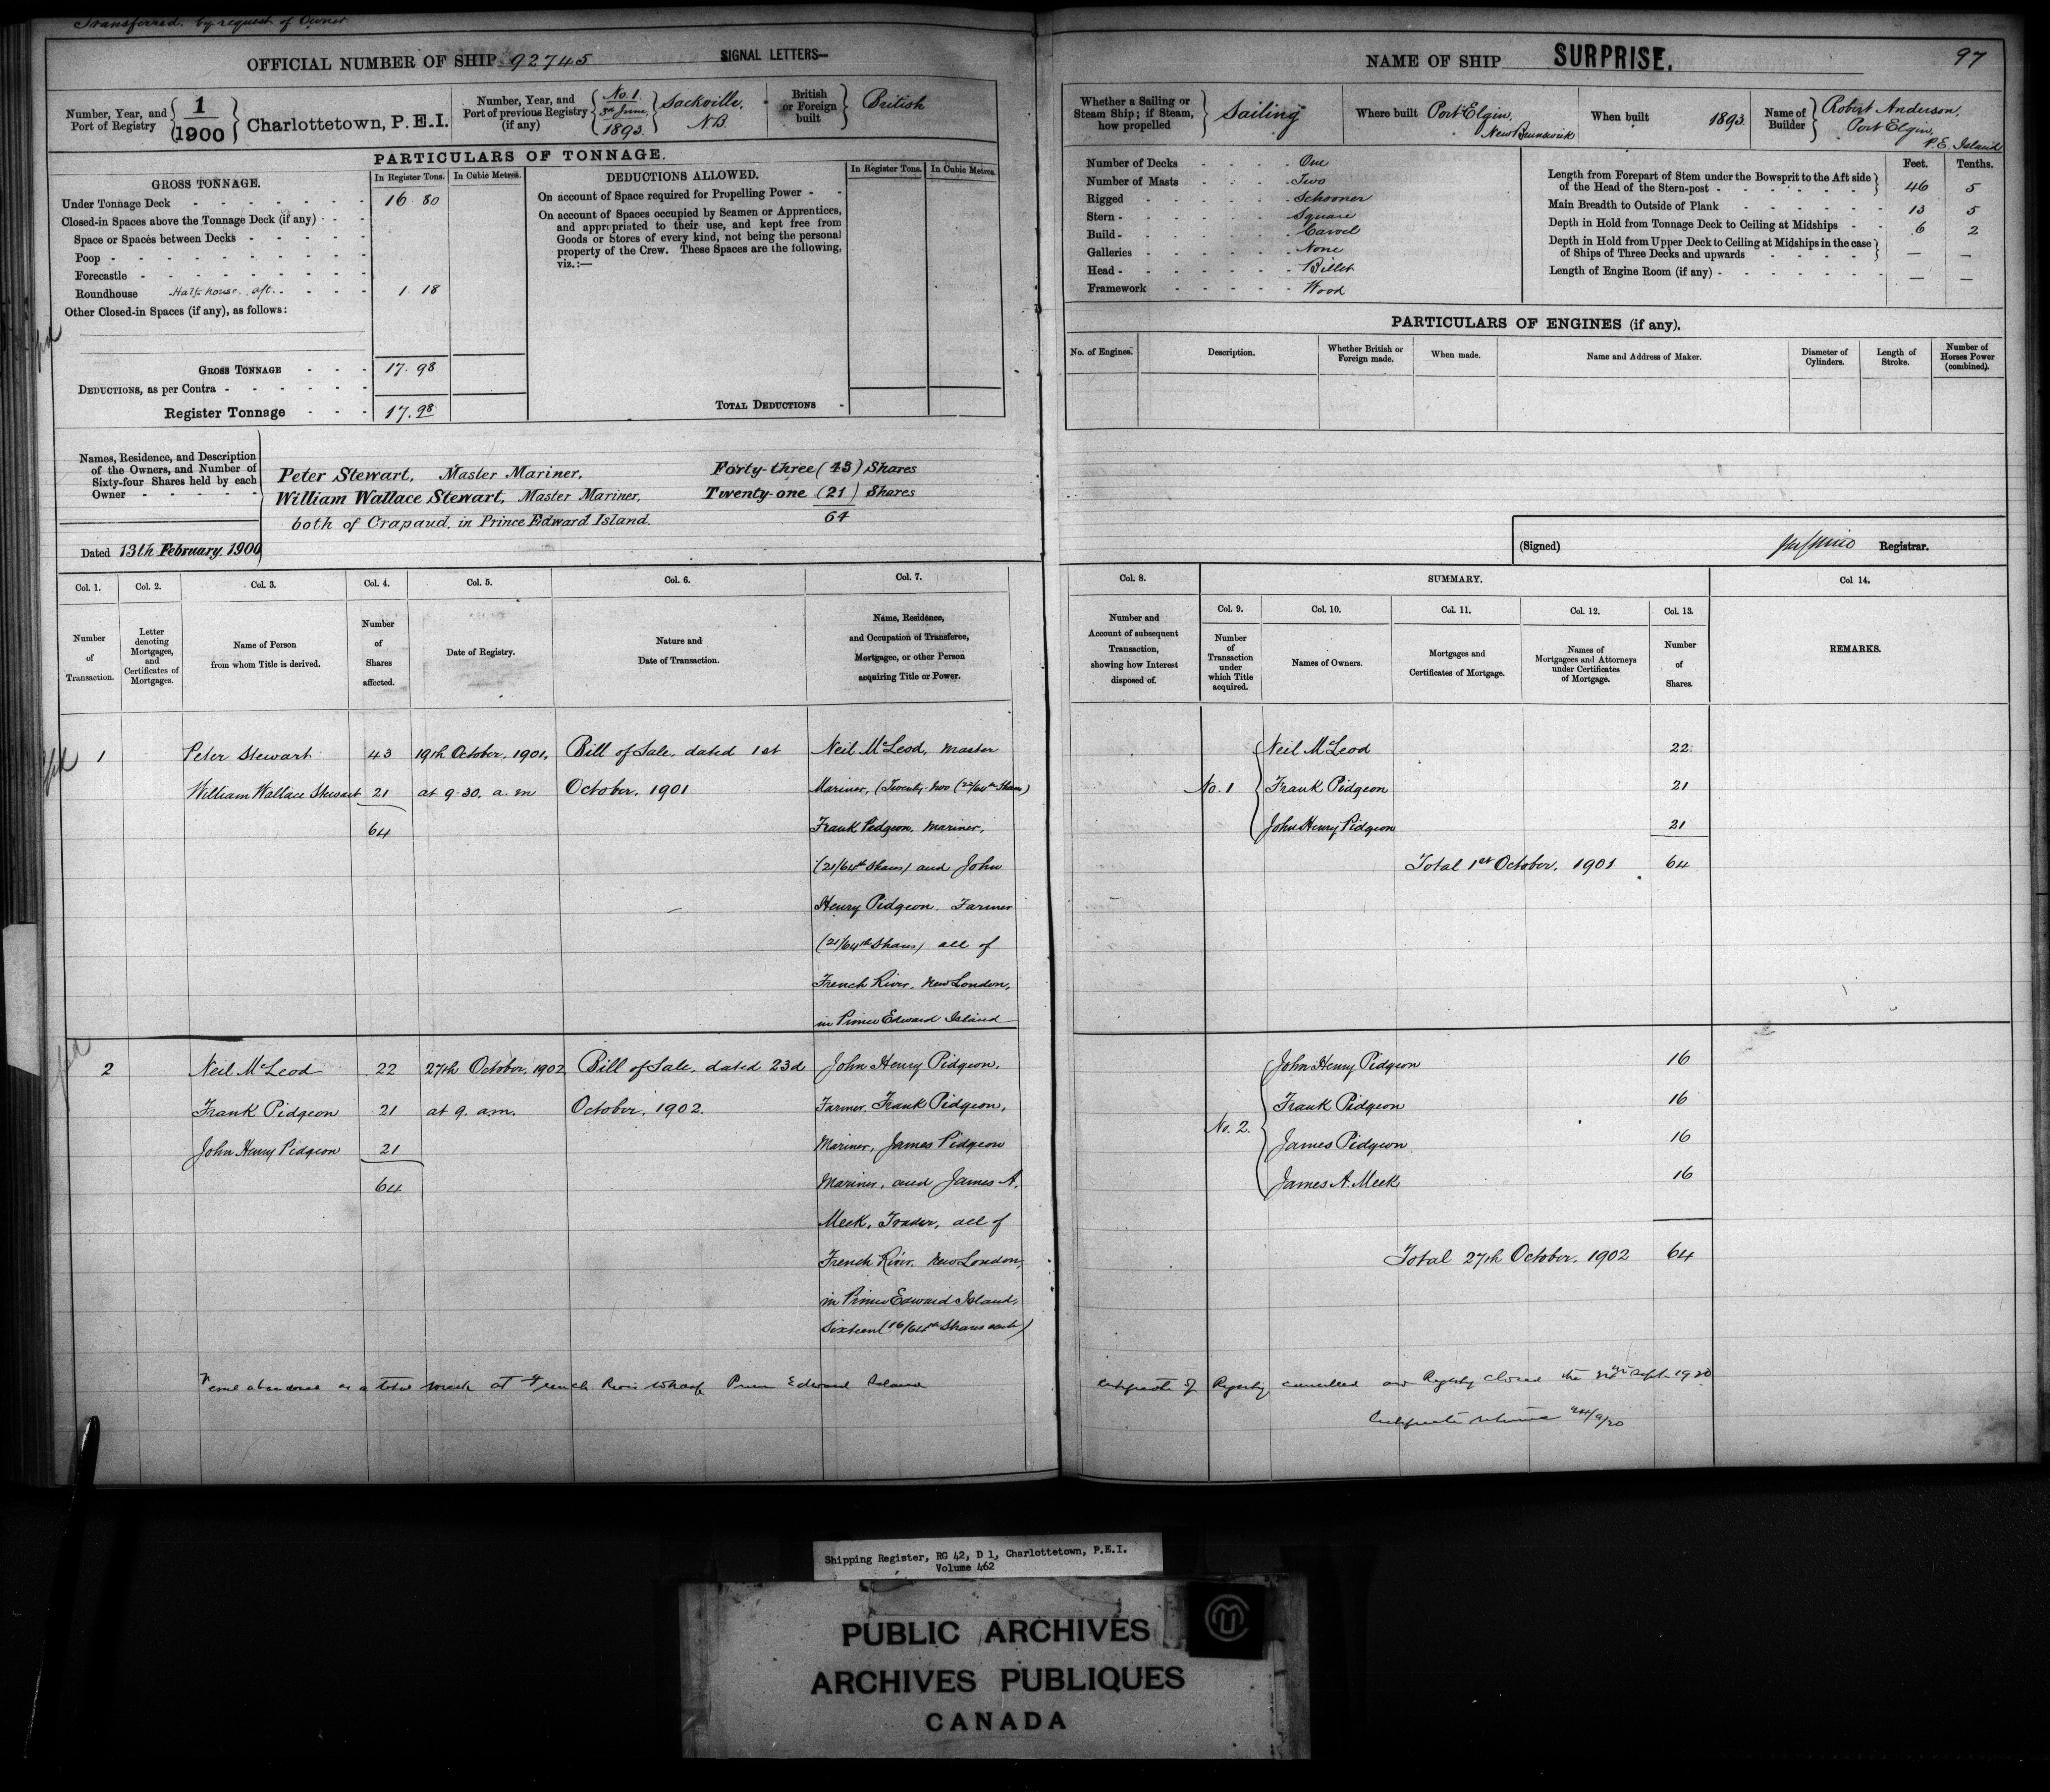 Transferred. by request of Owner
OFFICIAL NUMBER OF SHIP 92745 SIGNAL LETTERS—
Number, Year, and Port of Registry { 1/1900 } Charlottetown, P.E.I.
Number, Year, and Port of previous Registry (if any) { No. 1. 5th June, 1893. } Sackville, N.B.
British or Foreign built } British
PARTICULARS OF TONNAGE.
GROSS TONNAGE. In Register Tons. In Cubic Metres.
Under Tonnage Deck 16 80
Closed-in Spaces above the Tonnage Deck (if any)
Space or Spaces between Decks
Poop
Forecastle
Roundhouse Half-house aft. 1. 18
Other Closed-in Spaces (if any), as follows:
GROSS TONNAGE 17. 98
DEDUCTIONS, as per Contra
Register Tonnage 17. 98
DEDUCTIONS ALLOWED. In Register Tons. In Cubic Metres.
On account of Space required for Propelling Power
On account of Spaces occupied by Seamen or Apprentices,
and appropriated to their use, and kept free from
Goods or Stores of every kind, not being the personal
property of the Crew. These Spaces are the following,
viz.:—
TOTAL DEDUCTIONS
Names, Residence, and Description
of the Owners, and Number of
Sixty-four Shares held by each
Owner
Peter Stewart, Master Mariner, Forty-three (43) Shares
William Wallace Stewart, Master Mariner, Twenty-one (21) Shares
both of Crapaud, in Prince Edward Island. 64
Dated 13th February. 1900
Col. 1. Col. 2. Col. 3. Col. 4. Col. 5. Col. 6. Col. 7.
Number of Transaction.
Letter denoting Mortgages, and Certificates of Mortgages.
Name of Person from whom Title is derived.
Number of Shares affected.
Date of Registry.
Nature and Date of Transaction.
Name, Residence, and Occupation of Transferee, Mortgagee, or other Person acquiring Title or Power.
1 Peter Stewart 43 19th October, 1901, Bill of Sale, dated 1st Neil McLeod, Master
William Wallace Stewart 21 at 9-30. a. m October, 1901 Mariner, (Twenty-two (22/64th Shares)
64 Frank Pidgeon, Mariner,
(21/64th Shares) and John
Henry Pidgeon. Farmer
(21/64th Shares) all of
French River. New London,
in Prince Edward Island
2 Neil McLeod 22 27th October, 1902 Bill of Sale, dated 23d John Henry Pidgeon,
Frank Pidgeon 21 at 9. a.m. October, 1902. Farmer. Frank Pidgeon,
John Henry Pidgeon 21 Mariner, James Pidgeon
64 Mariner, and James A.
Meek, Trader, all of
French River. New London,
in Prince Edward Island,
Sixteen (16/64th Shares each)
Vessel abandoned as a total wreck at French River Wharf Prince Edward Island
NAME OF SHIP SURPRISE. 97
Whether a Sailing or Steam Ship; if Steam, how propelled } Sailing
Where built Port Elgin, New Brunswick
When built 1893.
Name of Builder } Robert Anderson, Port Elgin, P.E. Island
Number of Decks One
Number of Masts Two
Rigged Schooner
Stern Square
Build Carvel
Galleries None
Head Billet
Framework Wood
Feet. Tenths.
Length from Forepart of Stem under the Bowsprit to the Aft side
of the Head of the Stern-post 46 5
Main Breadth to Outside of Plank 13 5
Depth in Hold from Tonnage Deck to Ceiling at Midships 6 2
Depth in Hold from Upper Deck to Ceiling at Midships in the case
of Ships of Three Decks and upwards — —
Length of Engine Room (if any) — —
PARTICULARS OF ENGINES (if any).
No. of Engines. Description. Whether British or Foreign made. When made. Name and Address of Maker. Diameter of Cylinders. Length of Stroke. Number of Horses Power (combined).
(Signed) Registrar.
Col. 8. SUMMARY. Col 14.
Col. 9. Col. 10. Col. 11. Col. 12. Col. 13.
Number and Account of subsequent Transaction, showing how Interest disposed of.
Number of Transaction under which Title acquired.
Names of Owners.
Mortgages and Certificates of Mortgage.
Names of Mortgagees and Attorneys under Certificates of Mortgage.
Number of Shares.
REMARKS.
Neil McLeod 22
No. 1 Frank Pidgeon 21
John Henry Pidgeon 21
Total 1st October, 1901 64
John Henry Pidgeon 16
Frank Pidgeon 16
No. 2. James Pidgeon 16
James A. Meek 16
Total 27th October, 1902 64
Certificate of Registry cancelled and Registry closed the Sept 1920
Certificate 24/9/20
Shipping Register, RG 42, D 1, Charlottetown, P.E.I.
Volume 462
PUBLIC ARCHIVES
ARCHIVES PUBLIQUES
CANADA